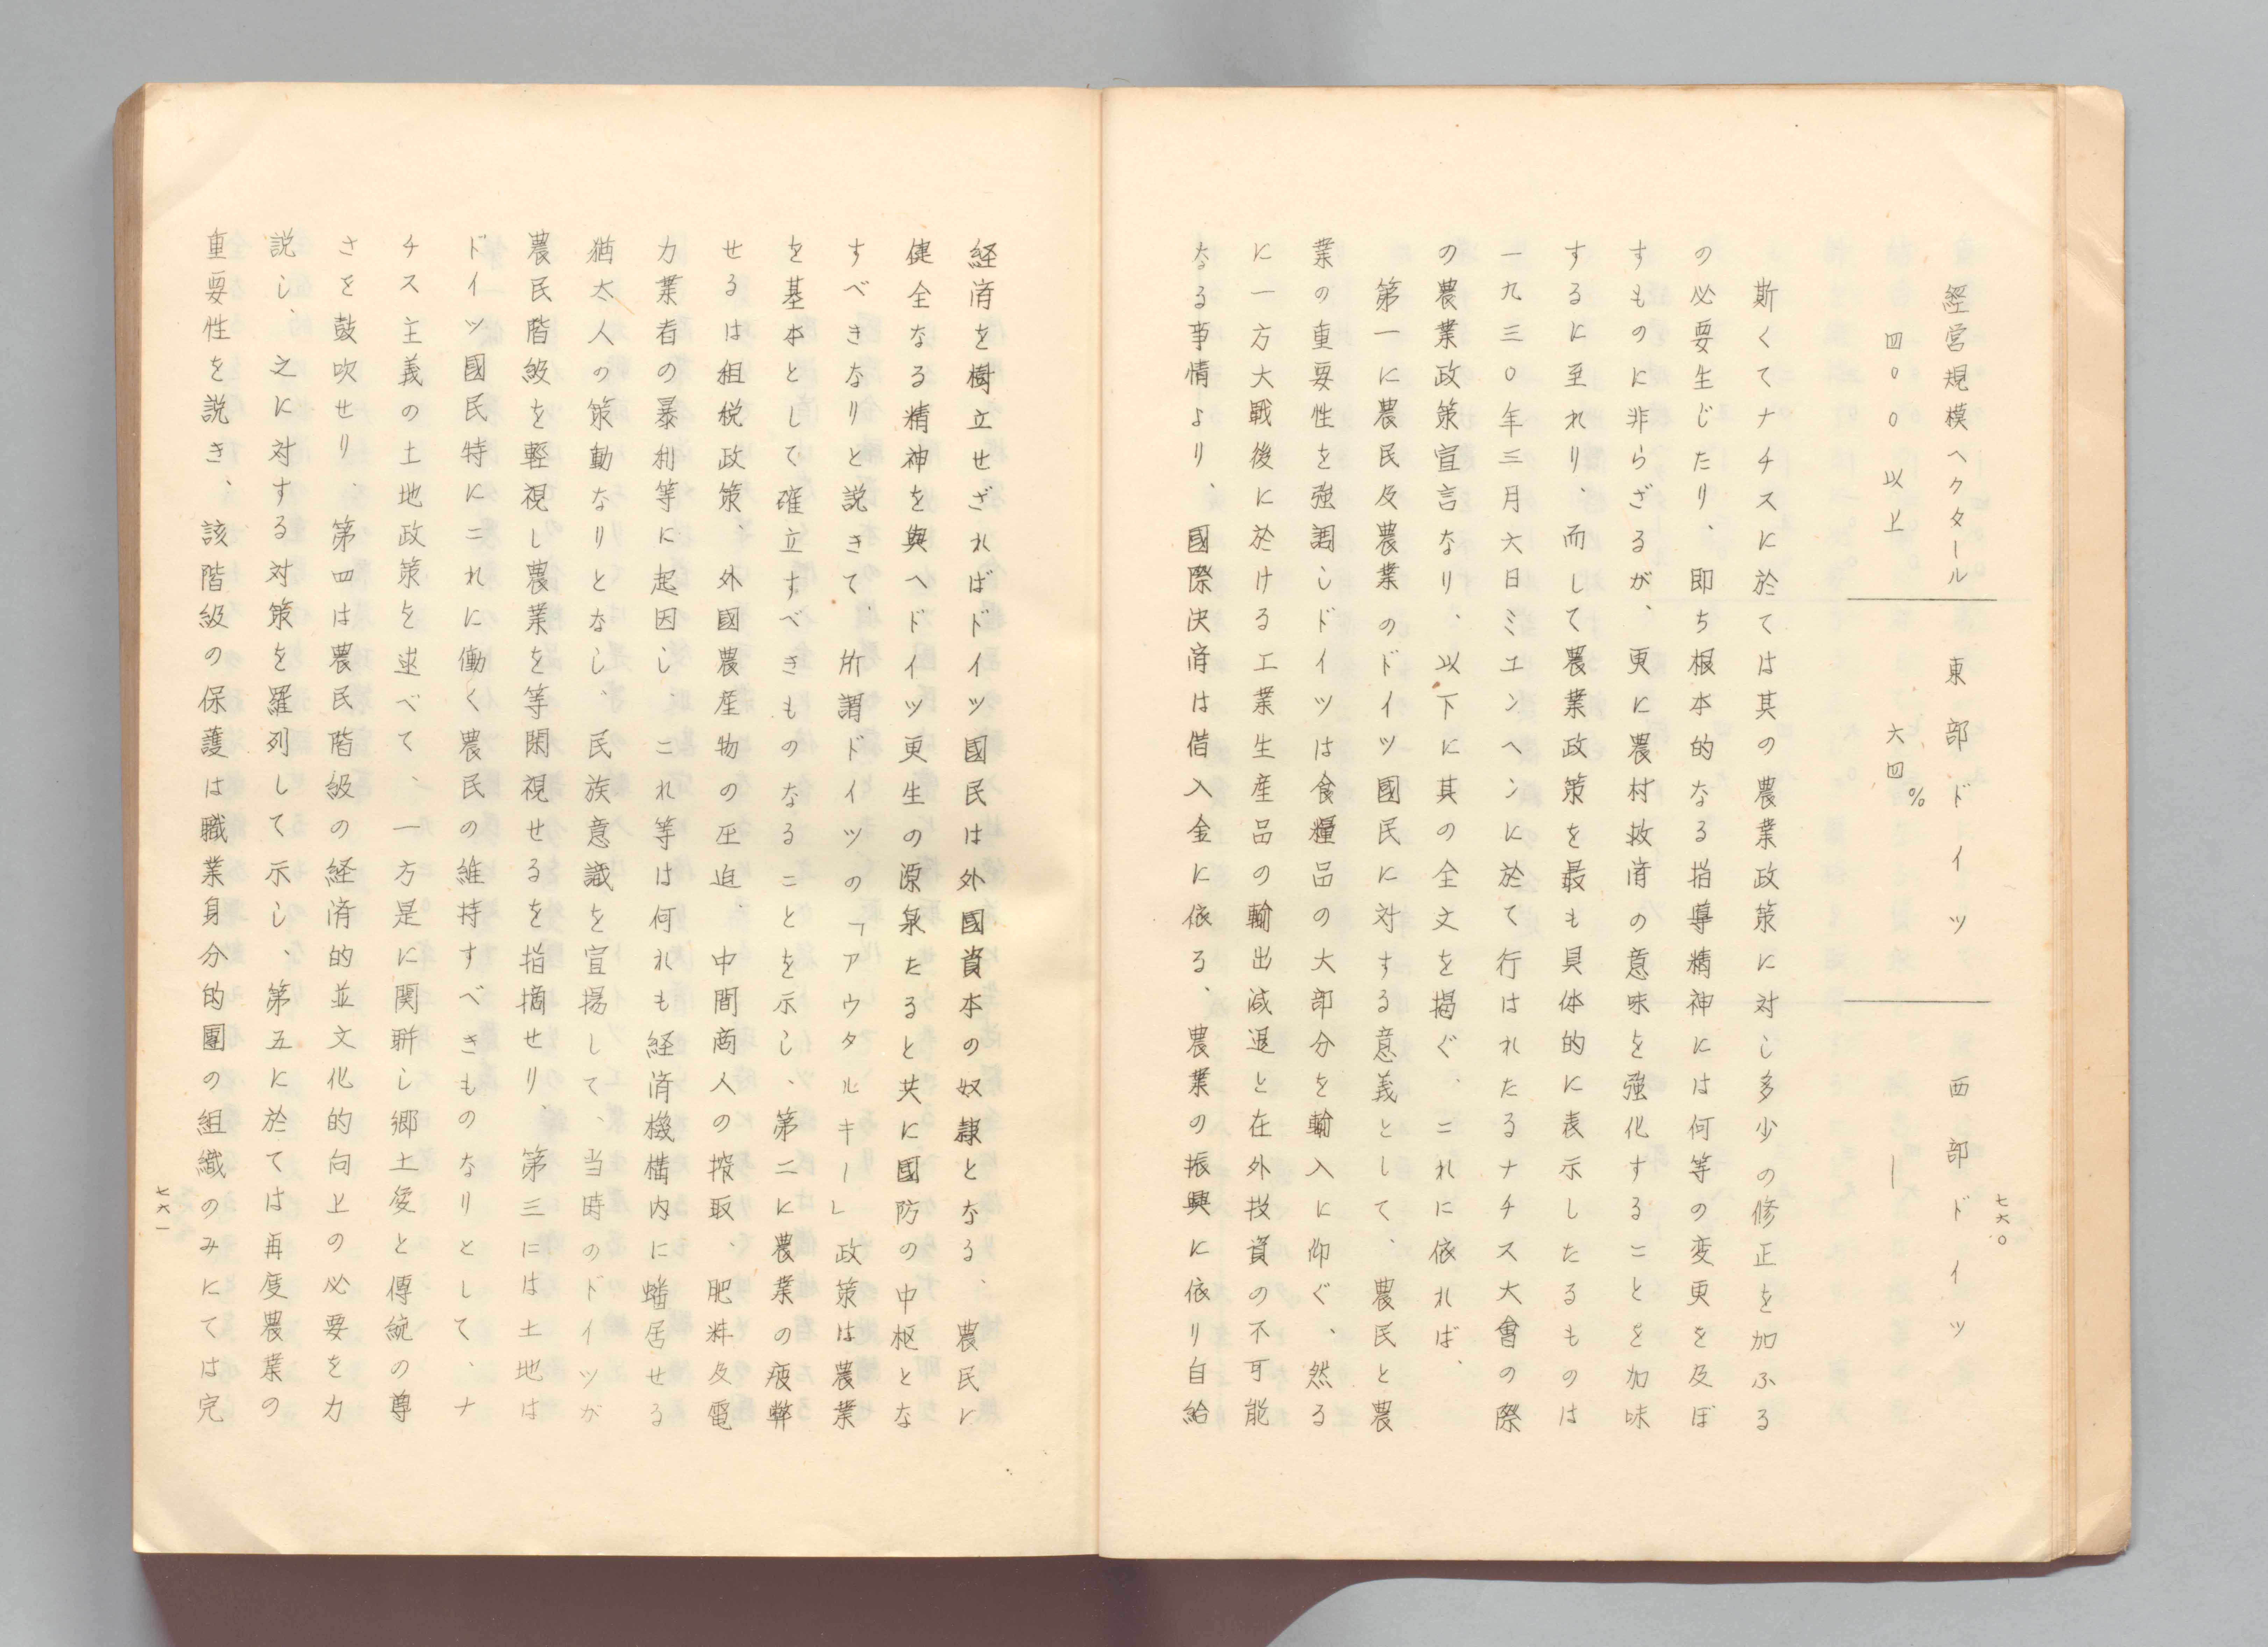 七六〇
經営規模ヘクタール　東部ドイツ　西部ドイツ
四〇〇以上　六四％　―
斯くてナチスに於ては其の農業政策に対し多少の修正を加ふる
の必要生じたり、即ち根本的なる指導精神には何等の変更を及ぼ
すものに非らざるが、更に農村救済の意味を強化することを加味
するに至れり、而して農業政策を最も具体的に表示したるものは
一九三〇年三月六日ミユンヘンに於て行はれたるナチス大會の際
の農業政策宣言なり、以下に其の全文を掲ぐ、これに依れば、
第一に農民及農業のドイツ國民に対する意義として、農民と農
業の重要性を強調しドイツは食糧品の大部分を輸入に仰ぐ、然る
に一方大戦後に於ける工業生産品の輸出減退と在外投資の不可能
なる事情より、國際決済は借入金に依る、農業の振興に依り自給
経済を樹立せざればドイツ國民は外國資本の奴隷となる、農民に
健全なる精神を與へドイツ更生の源泉たると共に國防の中枢とな
すべきなりと説きて、所謂ドイツの「アウタルキー」政策は農業
を基本として確立すべきものなることを示し、第二に農業の疲弊
せるは租税政策、外國農産物の圧迫、中間商人の搾取、肥料及電
力業者の暴利等に起因し、これ等は何れも経済機構内に蟠居せる
猶太人の策動なりとなし、民族意識を宣揚して、当時のドイツが
農民階級を軽視し農業を等閑視せるを指摘せり、第三には土地は
ドイツ國民特にこれに働く農民の維持すべきものなりとして、ナ
チス主義の土地政策を述べて、一方是に関聯し郷土愛と傳統の尊
さを鼓吹せり、第四は農民階級の経済的並文化的向上の必要を力
説し、之に対する対策を羅列して示し、第五に於ては再度農業の
重要性を説き、該階級の保護は職業身分的團の組織のみにては完
七六一